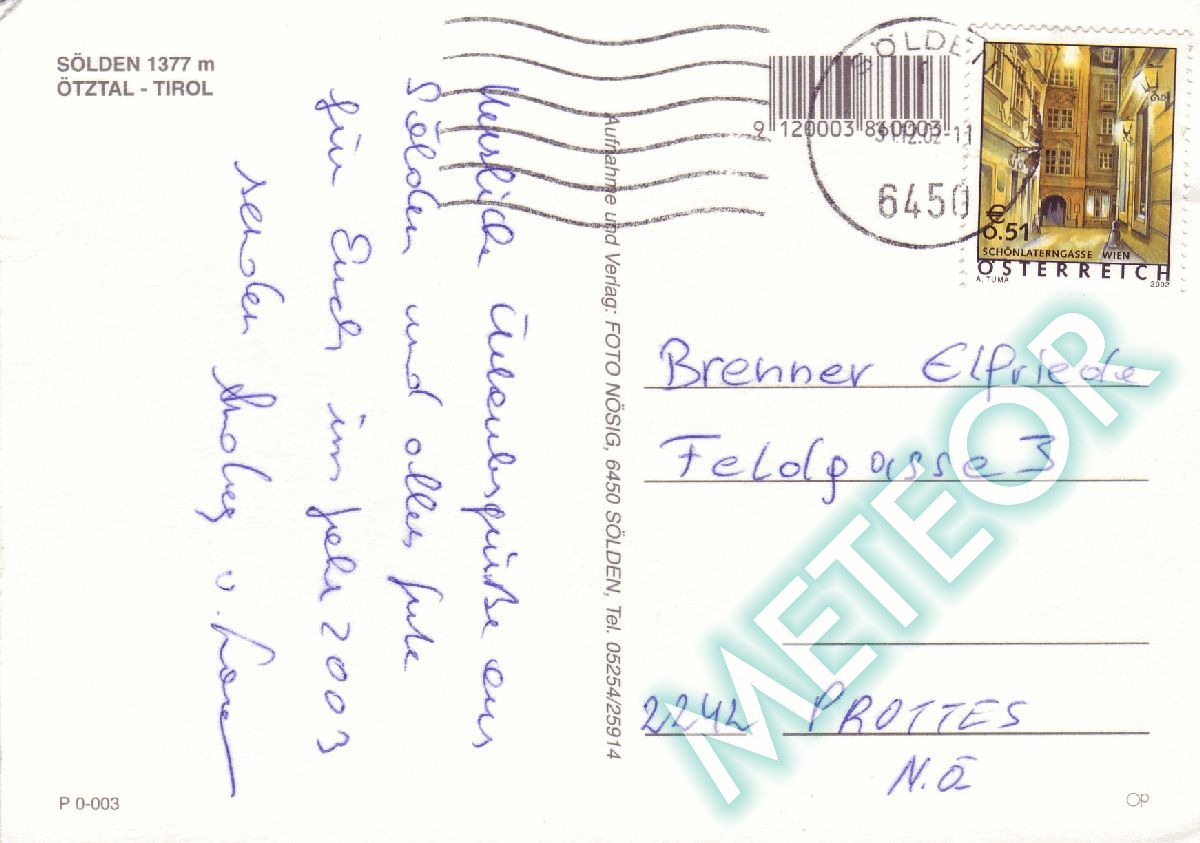 SÖLDEN 1377 m
ÖTZTAL - TIROL
Herzliche Urlaubsgrüße aus
Sölden und alles Gute
für Euch im Jahr 2003
senden
Aufnahme und Verlag: FOTO NÖSIG, 6450 SÖLDEN, Tel. 05254/25914
9 120003 860003
SÖLDEN
31.12.02-11
6450
€ 0.51
SCHÖNLATERNGASSE WIEN
ÖSTERREICH
A. TUMA 2002
Brenner Elfriede
Feldgasse 3
2242 PROTTES
N.Ö
METEOR
P 0-003